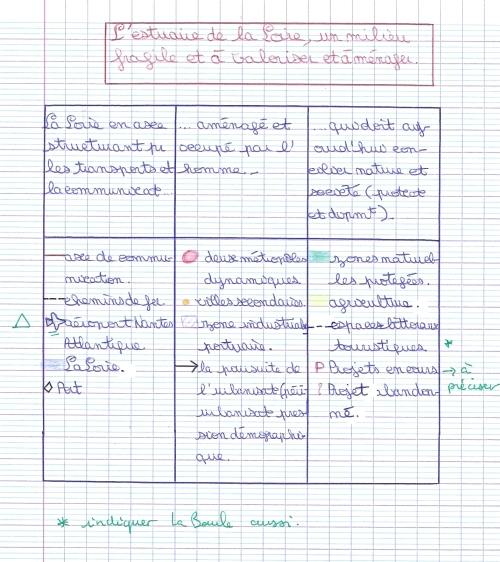 L'estuaire de la Loire, un milieu
fragile et à valoriser et à aménager.
La Loire en axe
structurant pr
les transports et
la communicat°...
... aménagé et
occupé par l'
homme...
...qui doit auj-
ourd'hui con-
cilier nature et
société (protect°
et dvpmt)
axe de commu-
nication.
chemins de fer
aéroport Nantes
Atlantique
La Loire.
Port
deux métropoles
dynamiques
villes secondaires
zone industrialo
portuaire.
la poursuite de
l'urbanisat° (péri-
urbanisat° pres-
sion démographi-
que.
zones naturel-
les protégées.
agriculture.
espaces littoraux
touristiques *
P Projets en cours → à
préciser
? Projet abandon-
né.
* indiquer La Baule aussi.